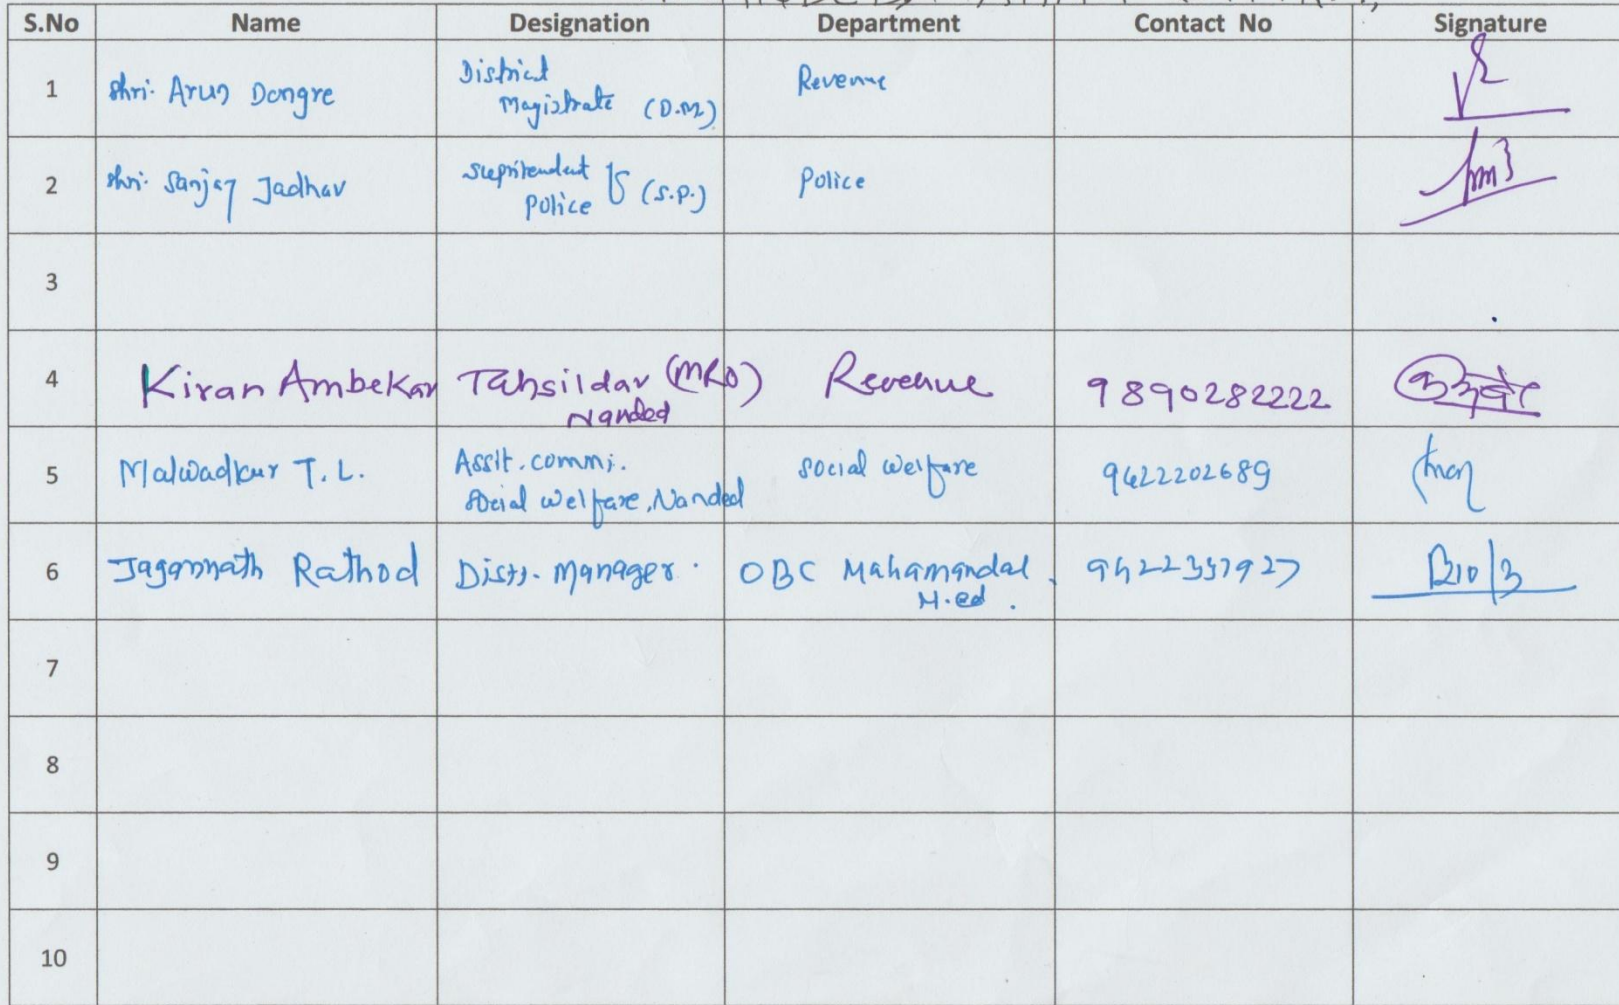 S.No Name Designation Department Contact No Signature
1 Shri. Arun Dongre District Magistrate (D.M) Revenue
2 Shri. Sanjay Jadhav Supritendent of Police (S.P.) Police
3
4 Kiran Ambekar Tahsildar (MRO) Nanded Revenue 9890282222
5 Malwadkar T. L. Assit. commi. social welfare, Nanded social welfare 9422202689
6 Jagannath Rathod Distt. Manager. OBC Mahamandal
7
8
9
10